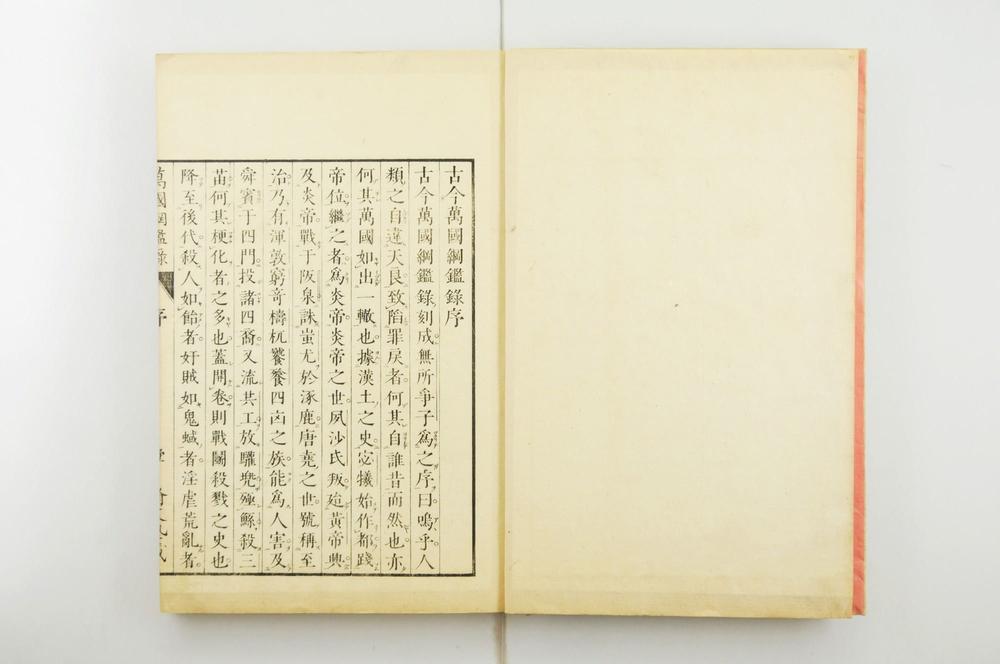 古今萬國綱鑑錄序
古今萬國綱鑑錄刻成無所爭子爲之序曰嗚乎人
類之自違天良致陷罪戻者何其自誰昔而然也亦
何其萬國如出一轍也據漢土之史宓犠始作都踐
帝位繼之者爲炎帝炎帝之世夙沙氏叛殆黄帝興
及炎帝戰于阪泉誅蚩尤於涿鹿唐堯之世號稱至
治乃有渾敦窮奇檮杌饕餮四凶之族能爲人害及
舜賓于四門投諸四裔又流共工放驩兜殛鯀殺三
苗何其梗化者之多也蓋開卷則戰鬭殺戮之史也
降至後代殺人如飴者奸賊如鬼蜮者淫虐荒亂者
萬國綱鑑錄 序